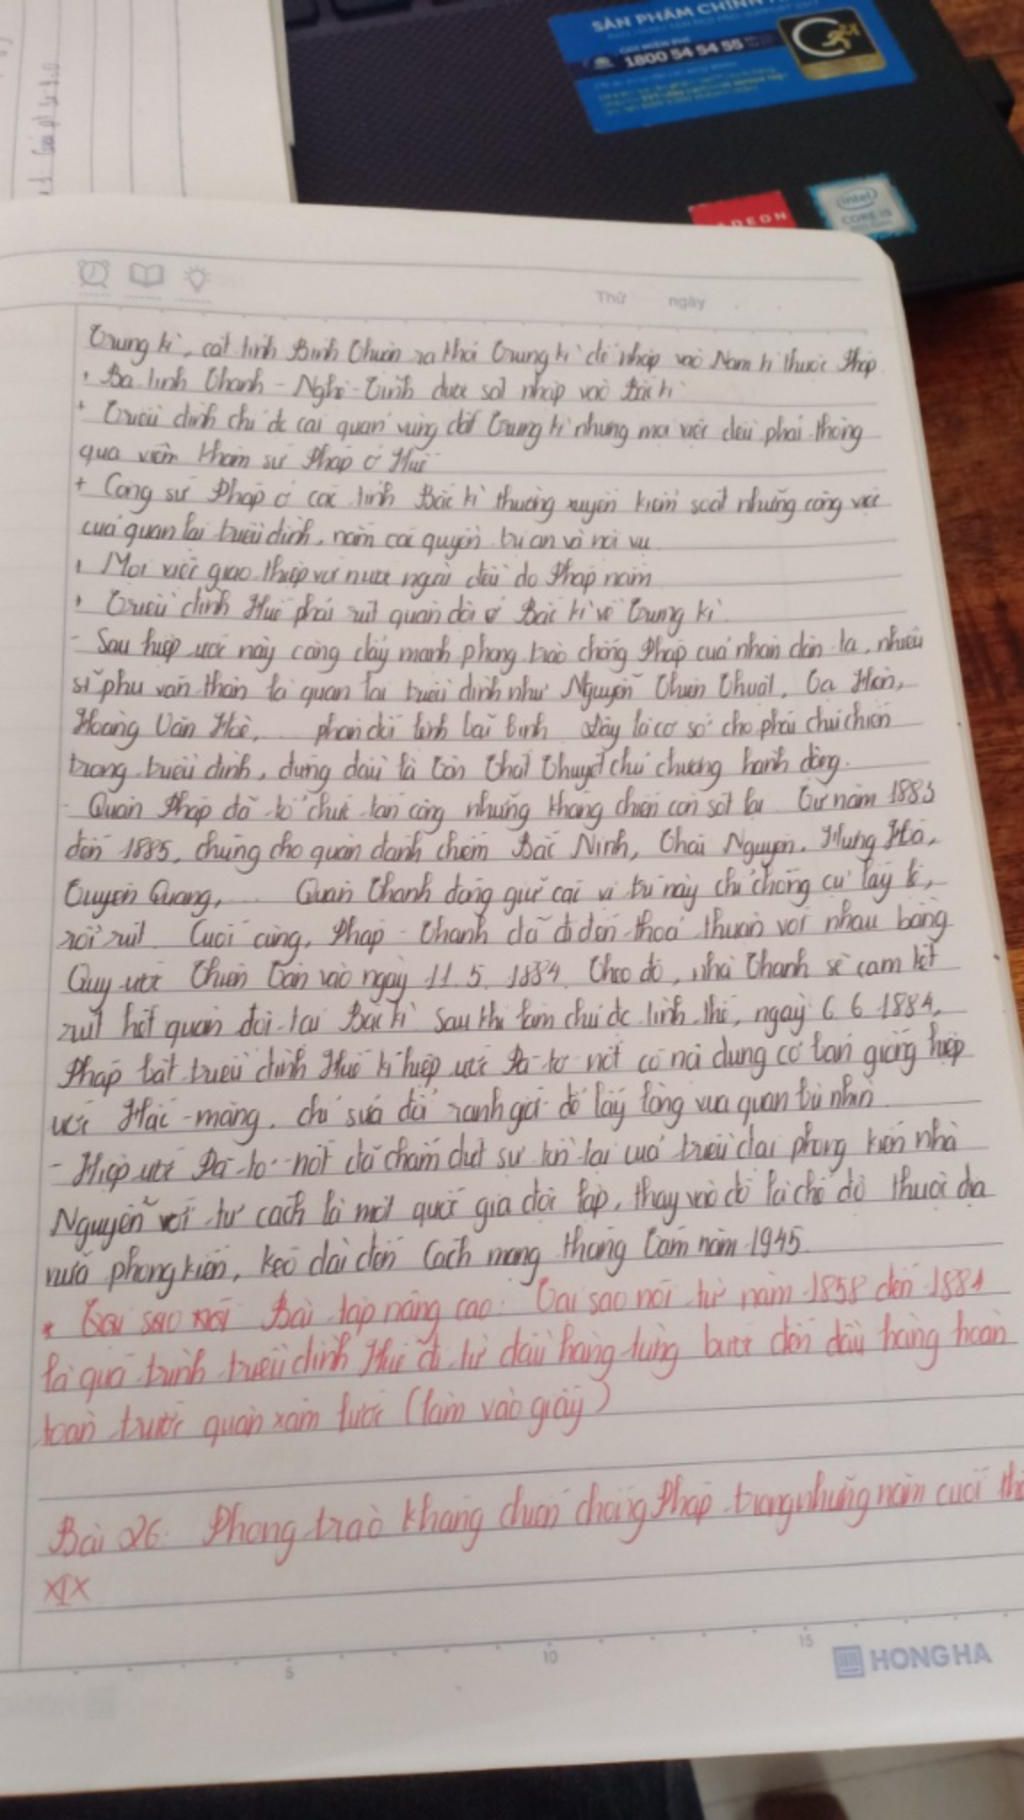 SẢN PHẨM CHÍNH
1800 54 54 55
RADEON
intel
CORE i5
Thứ ngày
Trung kì, cắt tỉnh Bình Thuận ra khỏi Trung kì để nhập vào Nam kì thuộc Pháp
+ Ba tỉnh Thanh - Nghệ - Tĩnh được sát nhập vào Bắc kì
+ Triều đình chỉ đc cai quản vùng đất Trung kì nhưng mọi việc đều phải thông
qua viên khâm sứ Pháp ở Huế
+ Công sứ Pháp ở các tỉnh Bắc kì thường xuyên kiểm soát những công việc
của quan lại triều đình, nắm các quyền trị an và nội vụ
+ Mọi việc giao thiệp với nước ngoài đều do Pháp nắm
+ Triều đình Huế phải rút quân đội ở Bắc kì về Trung kì.
- Sau hiệp ước này càng đẩy mạnh phong trào chống Pháp của nhân dân ta, nhiều
sĩ phu văn thân là quan lại triều đình như Nguyễn Thiện Thuật, Tạ Hiện,
Hoàng Văn Hòe, ... phản đối lệnh bãi binh. Đây là cơ sở cho phái chủ chiến
trong triều đình, đứng đầu là Tôn Thất Thuyết chủ trương hành động.
- Quân Pháp đã tổ chức tấn công những kháng chiến còn sót lại. Từ năm 1883
đến 1885, chúng cho quân đánh chiếm Bắc Ninh, Thái Nguyên, Hưng Hóa,
Tuyên Quang, ... Quân Thanh đóng giữ các vị trí này chỉ chống cự lấy lệ,
rồi rút. Cuối cùng, Pháp - Thanh đã đi đến thoả thuận với nhau bằng
Quy ước Thiên Tân vào ngày 11.5.1884. Theo đó, nhà Thanh sẽ cam kết
rút hết quân đội tại Bắc kì. Sau khi làm chủ đc tình thế, ngày 6.6.1884,
Pháp bắt triều đình Huế kí hiệp ước Pa-tơ-nốt có nội dung cơ bản giống hiệp
ước Hác-măng, chỉ sửa đổi ranh giới để lấy lòng vua quan bù nhìn
- Hiệp ước Pa-tơ-nốt đã chấm dứt sự tồn tại của triều đại phong kiến nhà
Nguyễn với tư cách là một quốc gia độc lập, thay vào đó là chế độ thuộc địa
nửa phong kiến, kéo dài đến Cách mạng tháng Tám năm 1945.
* Bài tập nâng cao: Tại sao nói từ năm 1858 đến 1884
là quá trình triều đình Huế đi từ đầu hàng từng bước đến đầu hàng hoàn
toàn trước quân xâm lược (làm vào giấy)
Bài 26: Phong trào kháng chiến chống Pháp trong những năm cuối thế
XIX
5 10 15
HONG HA